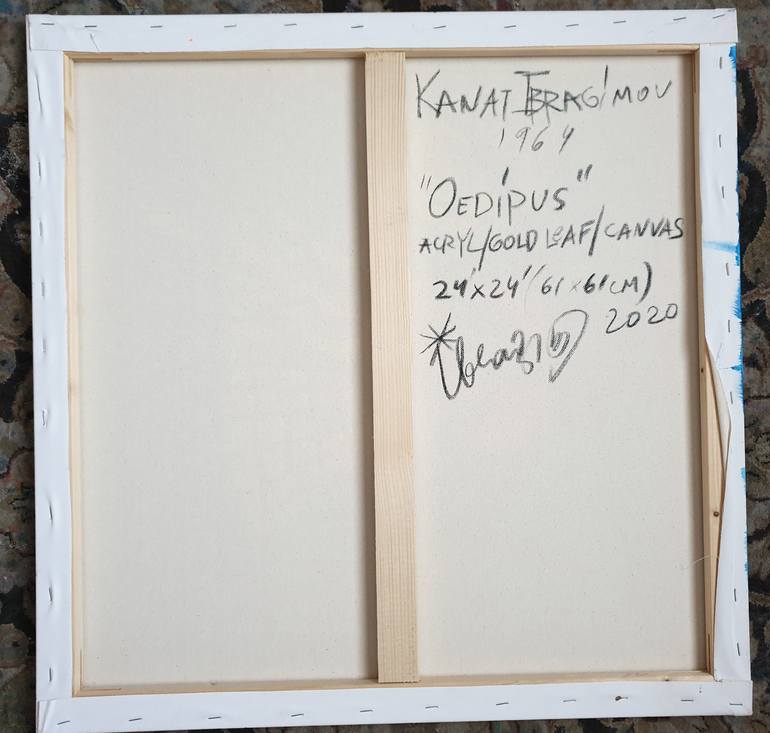 KANAT IBRAGIMOV
1964
"OEDIPUS"
ACRYL/GOLD LEAF/CANVAS
24"x24" (61x61CM)
2020